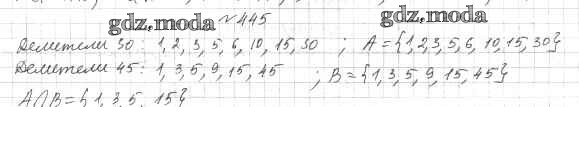 gdz.moda №445 gdz.moda
Делители 30: 1, 2, 3, 5, 6, 10, 15, 30 ; A={1,2,3, 5, 6, 10, 15, 30}
Делители 45: 1, 3, 5, 9, 15, 45 ; B={1, 3, 5, 9, 15, 45}
A∩B={1, 3, 5, 15}